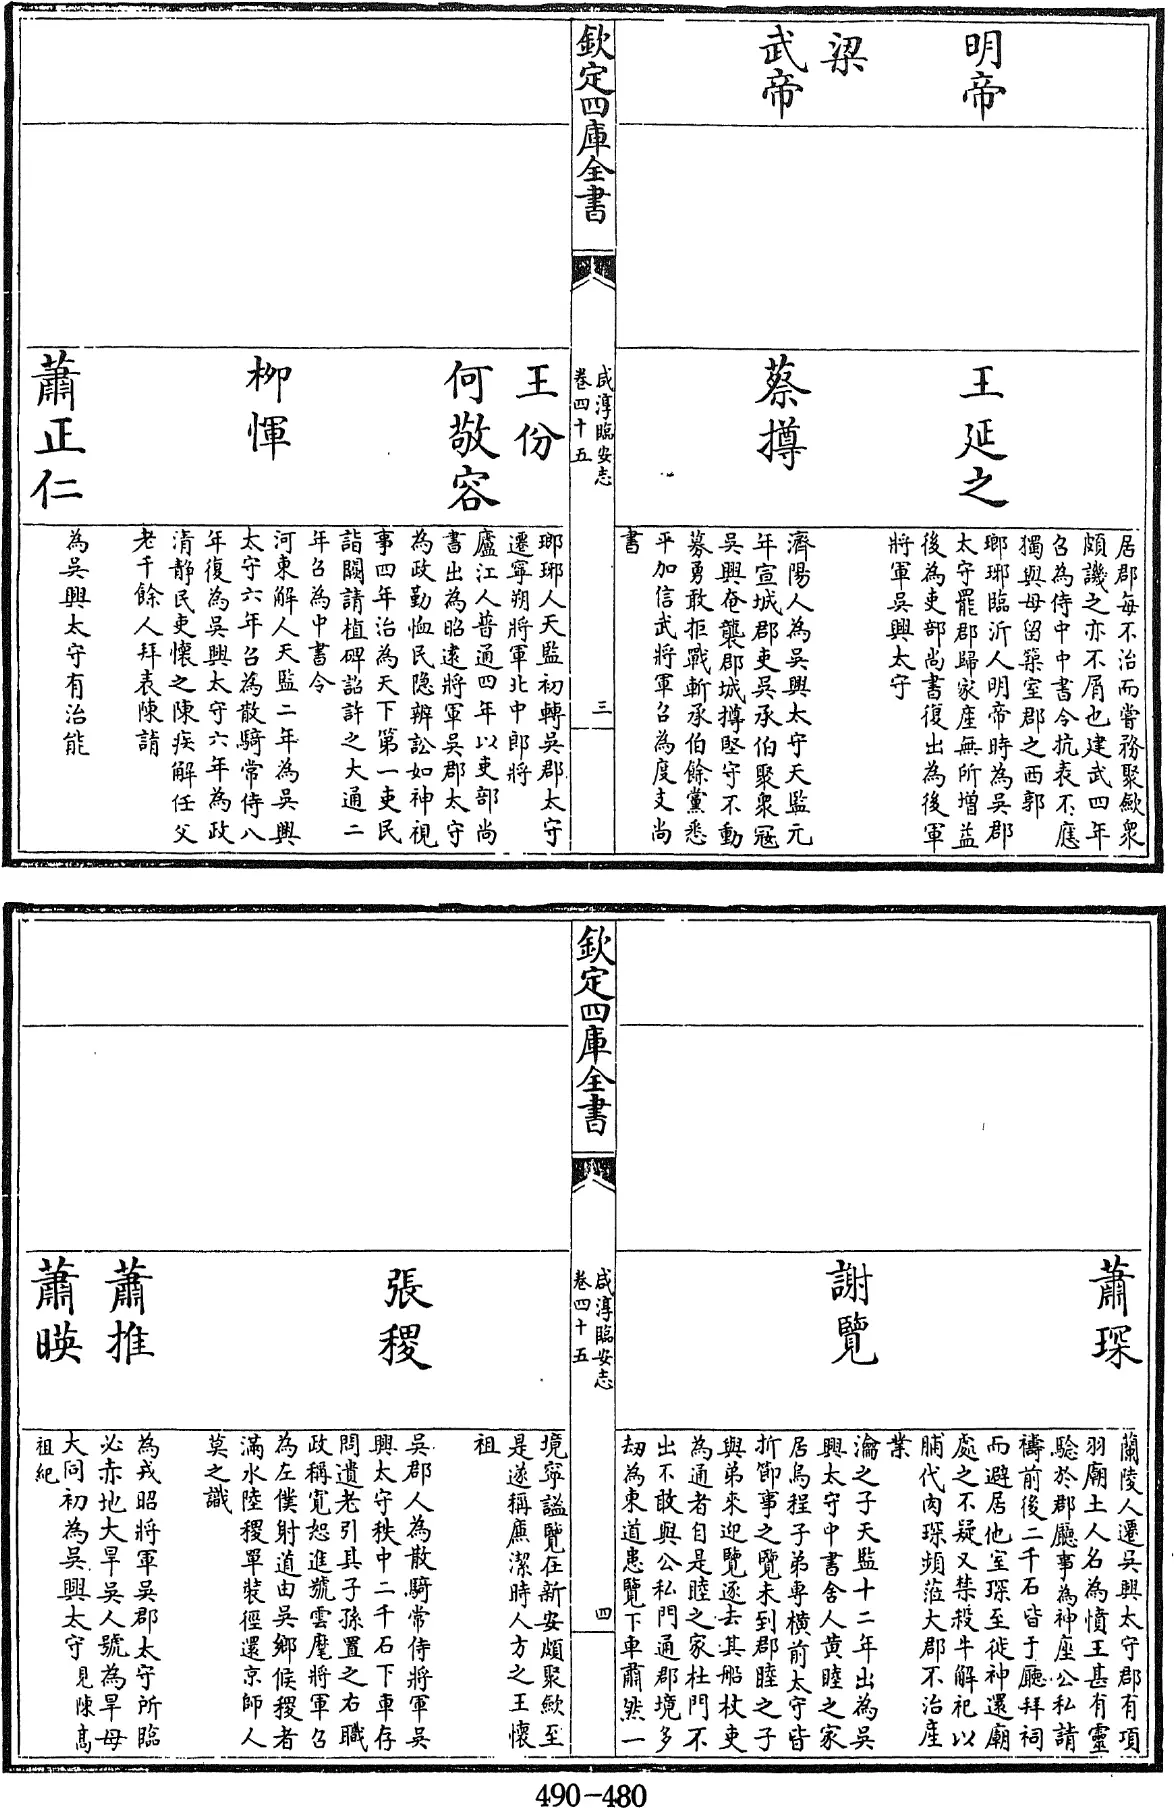 居郡每不治而嘗務聚歛衆
頗譏之亦不屑也建武四年
召為侍中中書令抗表不應
獨與母留築室郡之西郭
明帝
王延之
瑯琊臨沂人明帝時為吳郡
太守罷郡歸家産無所增益
後為吏部尚書復出為後軍
將軍吳興太守
梁
武帝
蔡撙
濟陽人為吳興太守天監元
年宣城郡吏吳承伯聚衆冦
吳興奄襲郡城撙堅守不動
募勇敢拒戰斬承伯餘黨悉
平加信武將軍召為度支尚
書
欽定四庫全書
咸淳臨安志
卷四十五
三
王份
瑯琊人天監初轉吳郡太守
遷寧朔將軍北中郎將
何敬容
廬江人普通四年以吏部尚
書出為昭逺將軍吳郡太守
為政勤恤民隐辨訟如神視
事四年治為天下第一吏民
詣闕請植碑詔許之大通二
年召為中書令
柳惲
河東解人天監二年為吳興
太守六年召為散騎常侍八
年復為吳興太守六年為政
清静民吏懷之陳疾解任父
老千餘人拜表陳請
蕭正仁
為吳興太守有治能
蕭琛
蘭陵人遷吳興太守郡有項
羽廟土人名為憤王甚有靈
驗於郡廳事為神座公私請
禱前後二千石皆于廳拜祠
而避居他室琛至徙神還廟
處之不疑又禁殺牛解祀以
脯代肉琛頻蒞大郡不治産
業
謝覽
瀹之子天監十二年出為吳
興太守中書舍人黄睦之家
居烏程子弟専横前太守皆
折節事之覽未到郡睦之子
與弟來迎覽逐去其船杖吏
為通者自是睦之家杜門不
出不敢與公私門通郡境多
刼為東道患覽下車肅然一
欽定四庫全書
咸淳臨安志
卷四十五
四
境寧謐覽在新安頗聚歛至
是遂稱廉潔時人方之王懐
祖
張稷
吳郡人為散騎常侍將軍吳
興太守秩中二千石下車存
問遺老引其子孫置之右職
政稱寛恕進號雲麾將軍召
為左僕射道由吳鄉候稷者
滿水陸稷單装徑還京師人
莫之識
蕭推
為戎昭將軍吳郡太守所臨
必赤地大旱吳人號為旱母
蕭暎
大同初為吳興太守見陳髙
祖紀
490-480